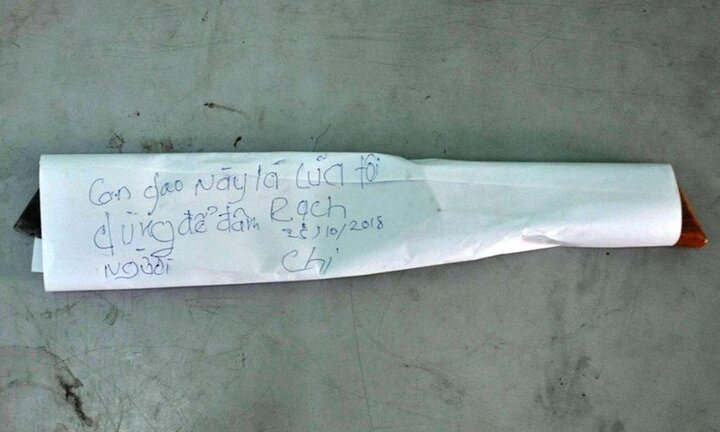 Con dao này là cũa tôi
dùng để đâm Rạch
25/10/2018
người
Chí